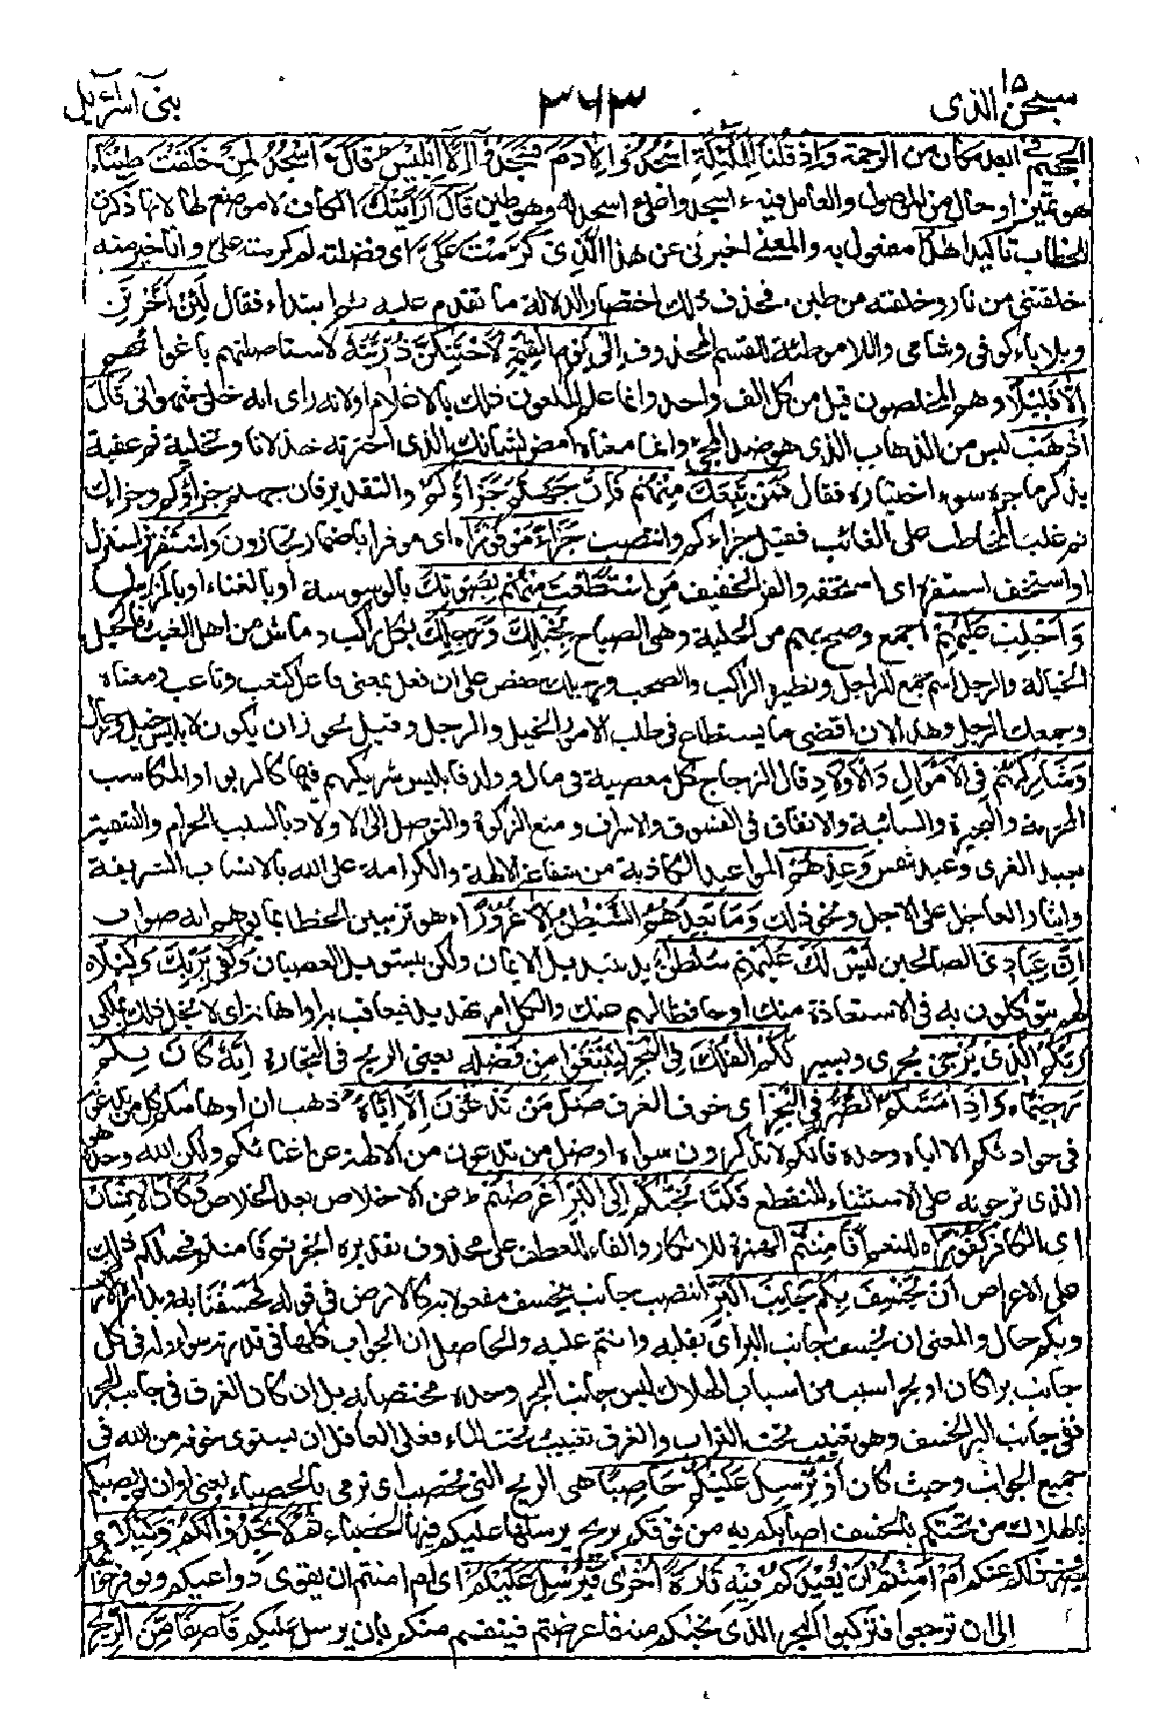 سبحن الذى ١٥
٣٦٣
بنى اسرائيل
الجحيم فى ابعد مكان من الرحمة وَاِذْ قُلْنَا لِلْمَلٰٓئِكَةِ اسْجُدُوْا لِاٰدَمَ فَسَجَدُوْٓا اِلَّآ اِبْلِيْسَ قَالَ ءَاَسْجُدُ لِمَنْ خَلَقْتَ طِيْنًا
هو تمييز او حال من الموصول والعامل فيه ءاسجد واصله ءاسجد له وهو طين قَالَ اَرَاَيْتَكَ الكاف لا موضع لها لانها ذكرت
للخطاب تاكيدا هٰذَا مفعول به والمعنى اخبرنى عن هذا الَّذِىْ كَرَّمْتَ عَلَىَّ اى فضلته لم كرمته على وانا خير منه
خلقتنى من نار وخلقته من طين فحذف ذلك اختصارا لدلالة ما تقدم عليه ثم ابتداء فقال لَئِنْ اَخَّرْتَنِ
وبلا ياء كوفى وشامى واللام موطئة للقسم المحذوف اِلٰى يَوْمِ الْقِيٰمَةِ لَاَحْتَنِكَنَّ ذُرِّيَّتَهٗٓ لاستاصلنهم باغوائهم
اِلَّا قَلِيْلًا وهم المخلصون قيل من كل الف واحد وانما علم الملعون ذلك بالاعلام او لانه راى انه خلق شهوانى قَالَ
اذْهَبْ ليس من الذهاب الذى هو ضد المجئ وانما معناه امض لشانك الذى اخترته خذلانا وتخلية ثم عقبه
بذكر ما جره سوء اختياره فقال فَمَنْ تَبِعَكَ مِنْهُمْ فَاِنَّ جَهَنَّمَ جَزَآؤُكُمْ والتقدير فان جهنم جزاؤهم وجزاءك
ثم غلب المخاطب على الغائب فقيل جزاءكم وانتصب جَزَآءً مَّوْفُوْرًا اى موفرا باضمار تجازون وَاسْتَفْزِزْ استزل
او استخف استفزه اى استخفه والفز الخفيف مَنِ اسْتَطَعْتَ مِنْهُمْ بِصَوْتِكَ بالوسوسة او بالغناء او بالمزامير
وَاَجْلِبْ عَلَيْهِمْ اجمع وصح بهم من الجلبة وهى الصياح بِخَيْلِكَ وَرَجِلِكَ بكل راكب وماش من اهل العيث فالخيل
الخيالة والرجل اسم جمع للراجل ونظيره الراكب والصحب ورجلك حفص على ان فعل بمعنى فاعل كتعب وتاعب ومعناه
وجمعك الرجل وهذا لان اقصى ما يستطاع فى طلب الامور الخيل والرجل وقيل يجوز ان يكون لابليس خيل ورجال
وَشَارِكْهُمْ فِى الْاَمْوَالِ وَالْاَوْلَادِ قال الزجاج كل معصية فى مال وولد فابليس شريكهم فيها كالربوا والمكاسب
المحرمة والبحيرة والسائبة والانفاق فى الفسوق والاسراف ومنع الزكوة والتوصل الى الاولاد بالسبب الحرام والتسمية
بعبد العزى وعبد شمس وَعِدْهُمْ المواعيد الكاذبة من شفاعة الالهة والكرامة على الله بالانساب الشريفة
وايثار العاجل على الاجل ونحو ذلك وَمَا يَعِدُهُمُ الشَّيْطٰنُ اِلَّا غُرُوْرًا هو تزيين الخطا بما يوهم انه صواب
اِنَّ عِبَادِىْ الصالحين لَيْسَ لَكَ عَلَيْهِمْ سُلْطٰنٌ يد بتبديل الايمان ولكن بتسويل العصيان وَكَفٰى بِرَبِّكَ وَكِيْلًا
لهم يتوكلون به فى الاستعاذة منك او حافظا لهم عنك والكل امر تهديد فيعاقب به او اهانة اى لا يخل ذلك بملكى
رَبُّكُمُ الَّذِىْ يُزْجِىْ يجرى ويسير لَكُمُ الْفُلْكَ فِى الْبَحْرِ لِتَبْتَغُوْا مِنْ فَضْلِهٖ يعنى الربح فى التجارة اِنَّهٗ كَانَ بِكُمْ
رَحِيْمًا وَاِذَا مَسَّكُمُ الضُّرُّ فِى الْبَحْرِ اى خوف الغرق ضَلَّ مَنْ تَدْعُوْنَ اِلَّآ اِيَّاهُ ذهب عن اوهامكم كل من تدعونه
فى حوادثكم الا اياه وحده فانكم لا تذكرون سواه او ضل من تدعون من الالهة عن اغاثتكم ولكن الله وحده هو
الذى ترجونه على الاستثناء المنقطع فَلَمَّا نَجّٰكُمْ اِلَى الْبَرِّ اَعْرَضْتُمْ عن الاخلاص بعد الخلاص وَكَانَ الْاِنْسَانُ
اى الكافر كَفُوْرًا للنعم اَفَاَمِنْتُمْ الهمزة للانكار والفاء للعطف على محذوف تقديره انجوتم فامنتم فحملكم ذلك
على الاعراض اَنْ يَّخْسِفَ بِكُمْ جَانِبَ الْبَرِّ انتصب جانب بيخسف مفعولا به كالارض فى قوله فخسفنا به وبداره الارض
وبكم حال والمعنى ان يخسف جانب البر اى يقلبه وانتم عليه والحاصل ان الجوانب كلها فى قدرته سواء وله فى كل
جانب برا كان او بحرا سبب من اسباب الهلاك ليس جانب البحر وحده مختصا به بل ان كان الغرق فى جانب البحر
ففى جانب البر الخسف وهو تغييب تحت التراب والغرق تغييب تحت الماء فعلى العاقل ان يستوى خوفه من الله فى
جميع الجوانب وحيث كان اَوْ يُرْسِلَ عَلَيْكُمْ حَاصِبًا هى الريح التى تحصب اى ترمى بالحصباء يعنى او ان لم يصبكم
بالهلاك من تحتكم بالخسف اصابكم به من فوقكم بريح يرسلها عليكم فيها الحصباء ثُمَّ لَا تَجِدُوْا لَكُمْ وَكِيْلًا
يصرف ذلك عنكم اَمْ اَمِنْتُمْ اَنْ يُّعِيْدَكُمْ فِيْهِ تَارَةً اُخْرٰى فَيُرْسِلَ عَلَيْكُمْ اى ام امنتم ان يقوى دواعيكم ويوفر حوائجكم
الى ان ترجعوا فتركبوا البحر الذى نجاكم منه فاعرضتم فينتقم منكم بان يرسل عليكم قَاصِفًا مِّنَ الرِّيْحِ